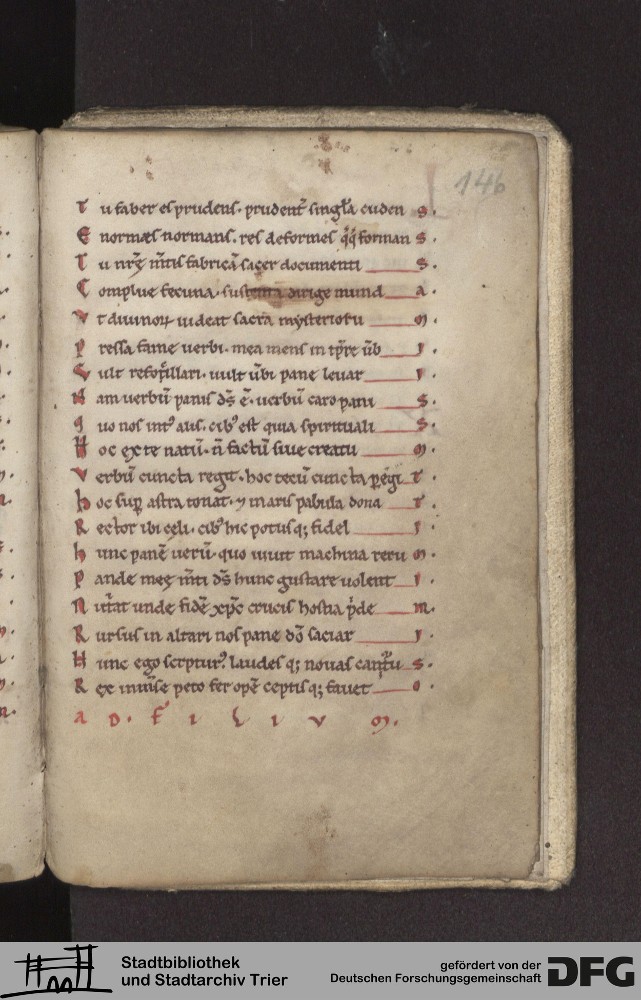 146
Tu faber es prudens. prudent̄ singl̄a cudens.
Enormes normans. res deformes q̄q̄ formans.
Tu nrę̄ m̄tis fabricā sacer documentis.
Complue fecuna. sustenta dirige munda.
Vt diuinoꝝ uideat sacra mysterioꝛum.
Pressa fame uerbi. mea mens in tp̄re ūbi.
Vult refoc̄illari. uult ūbi pane leuari.
Nam uerbū panis dś ē. uerbū caro panis.
Quo nos int᾽ aus. cib᾽ est quia spiritualis.
Hoc ex te natū. n̄ factū siue creatum.
Verbū cuncta regit. hoc tecū cuncta ꝑegit.
Hoc suꝑ astra tonat. ⁊ maris pabula donat.
Rector ibi cęli. cib᾽ hic potusq; fideli.
Hunc panē uerū. quo uiuit machina rerum.
Pande męę m̄ti dś hunc gustare uolenti.
Rursus in altari nos pane dō saciari.
Hunc ego scrptur᾽ laudes q; nouas cantur᾽s.
Rex inm̄se peto fer opē ceptisq; faueto.
AD. FILIVM.
Stadtbibliothek
und Stadtarchiv Trier
gefördert von der
Deutschen Forschungsgemeinschaft
DFG